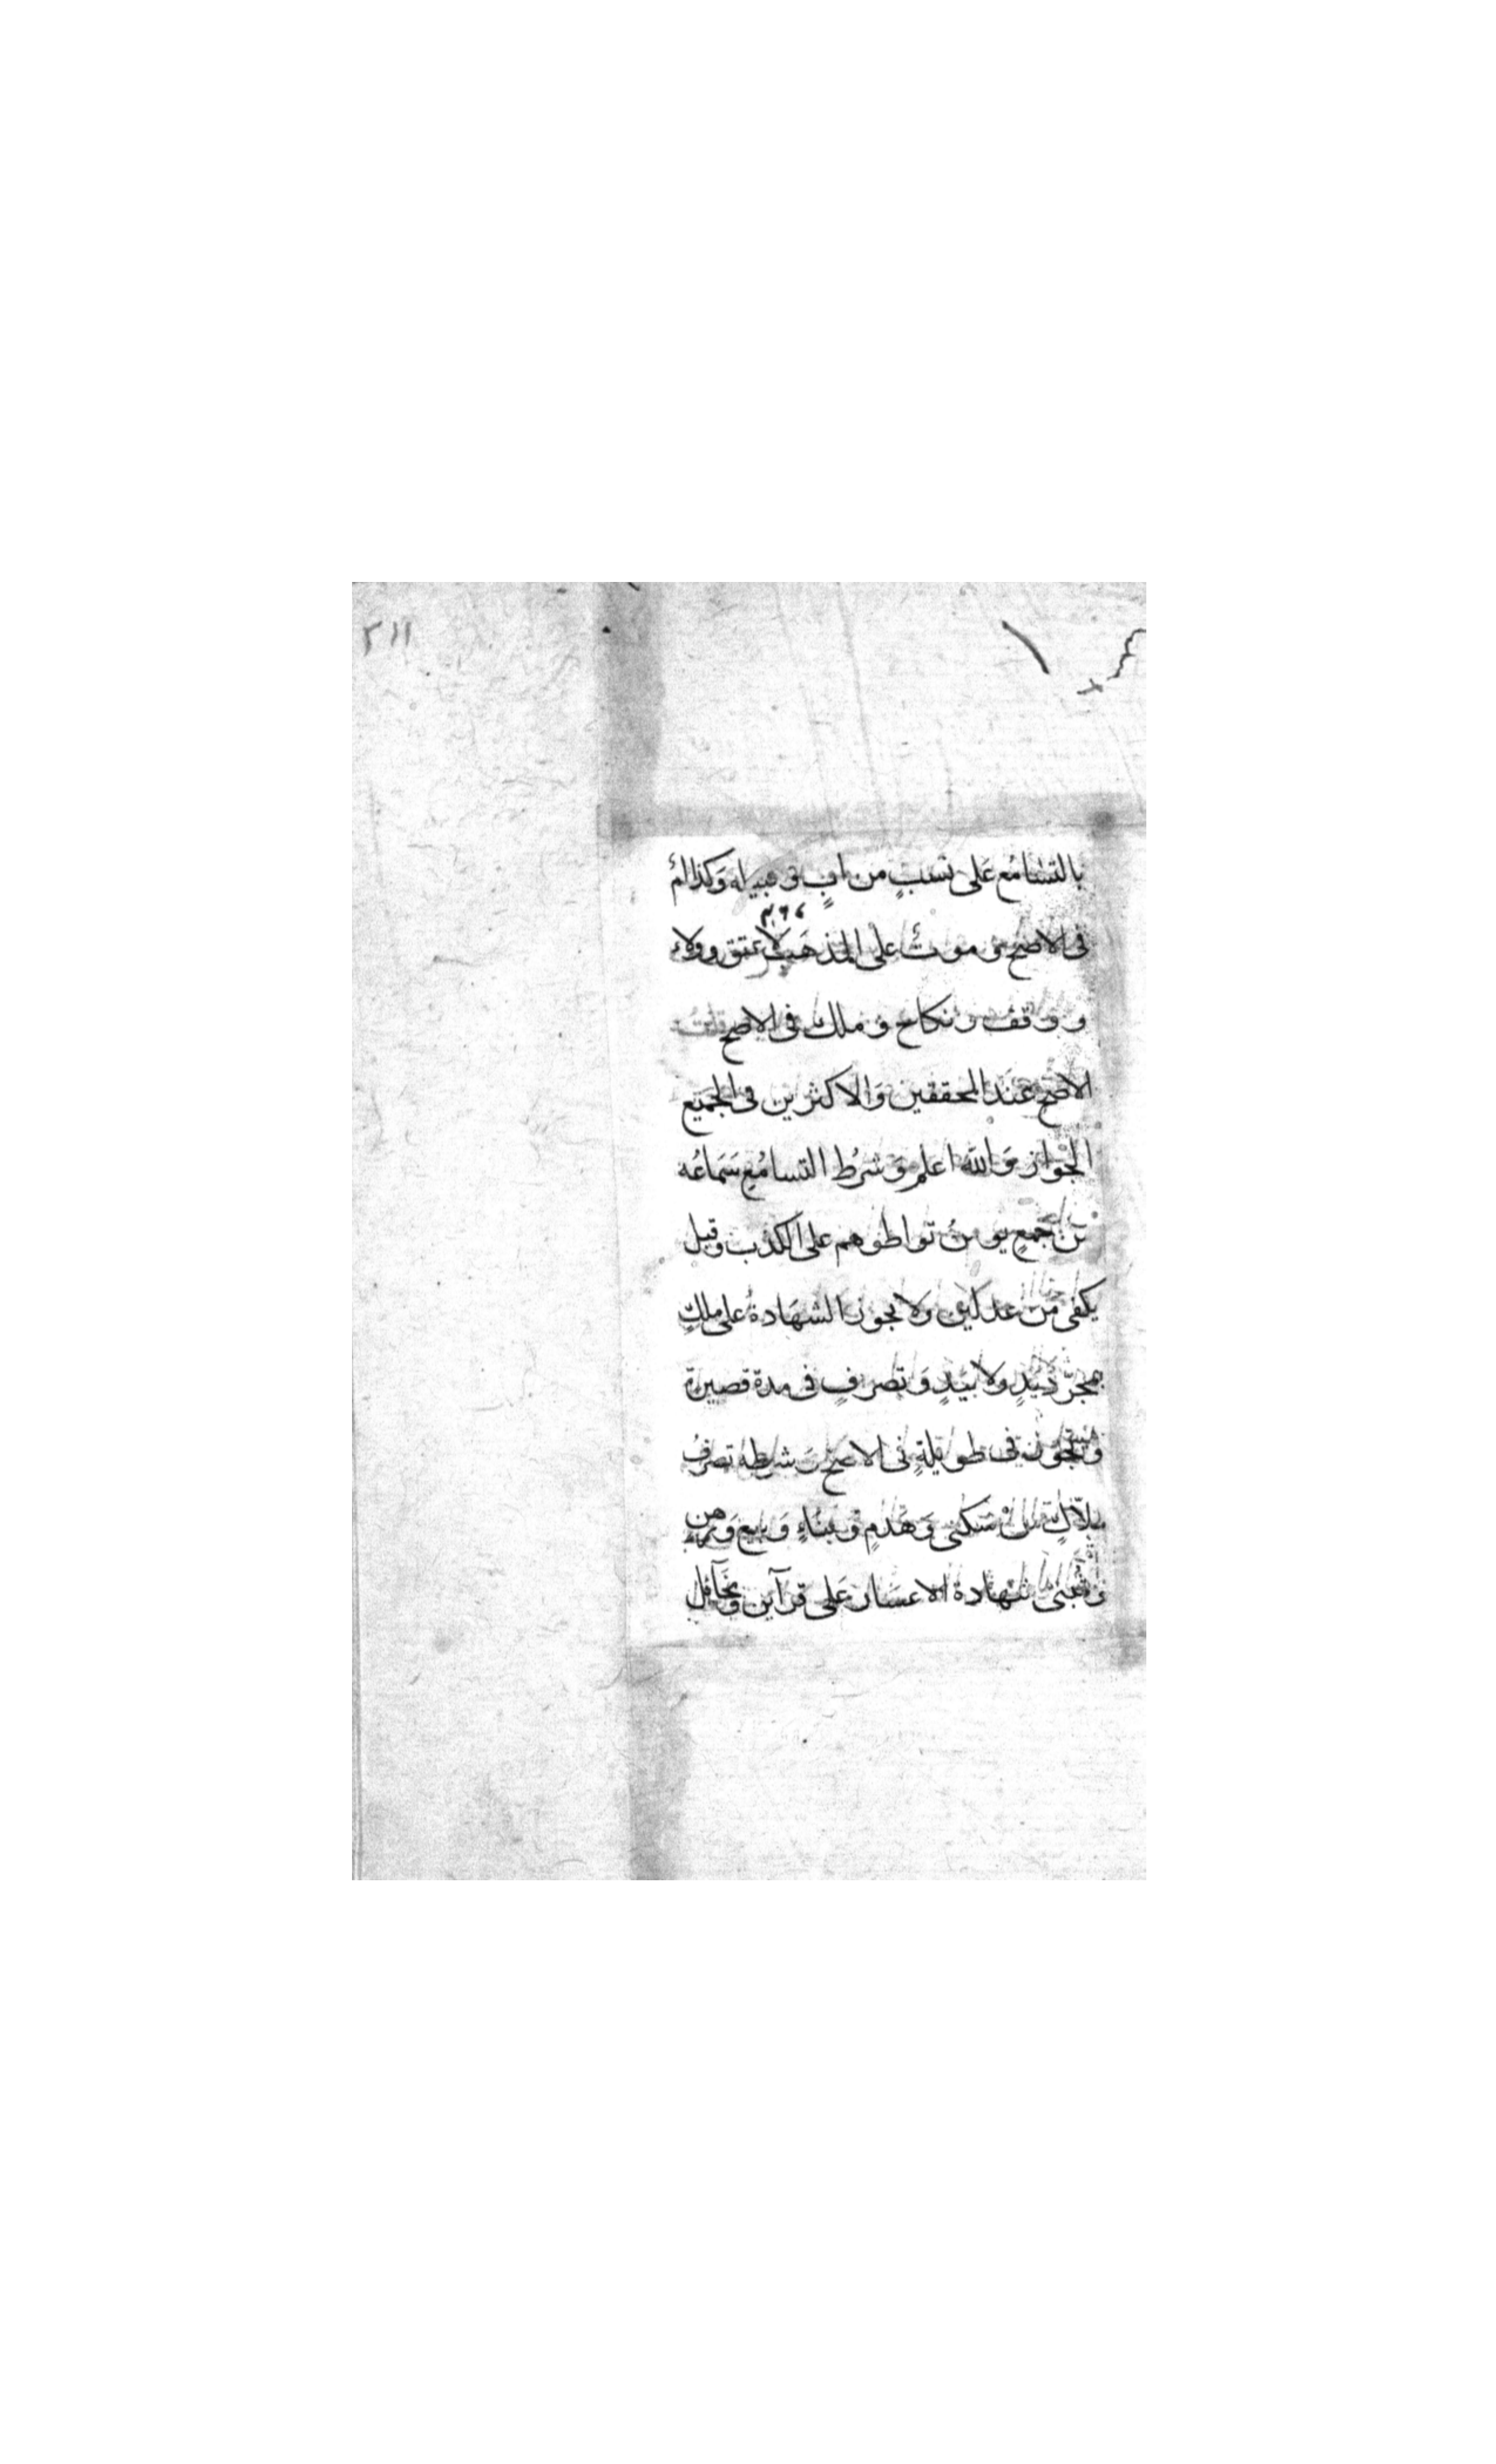 ٢١١
بالتسامُع عَلى نسَبٍ من ابٍ وَكذا امٌ
فى الاصح وموتٌ على المذهَب لا عتق وولاء
ووقف ونكاح وملك فى الاصح قلت
الاصح عنَد المحققين وَالاكثرين فى الجميع
الجَواز وَالله اعلم وَشرطُ التسامُع سَمَاعُه
من جمعٍ يومنُ تواطوهم على الكذب وقيل
يكفى من عدلين ولا يجوز الشهَادةُ على ملكٍ
بمجرّد يَدٍ ولا بيَدٍ وَتصرفٍ فى مدة قصيرة
وتجوز فى طويلةٍ فى الاصح وَشرطه تصرفُ
ملاّك من سَكنى وَهَدمٍ وَبنَاءٍ وَبيع وَرهن
وتبنى شهادة الاعسَار عَلى قرآين ومخَآئل